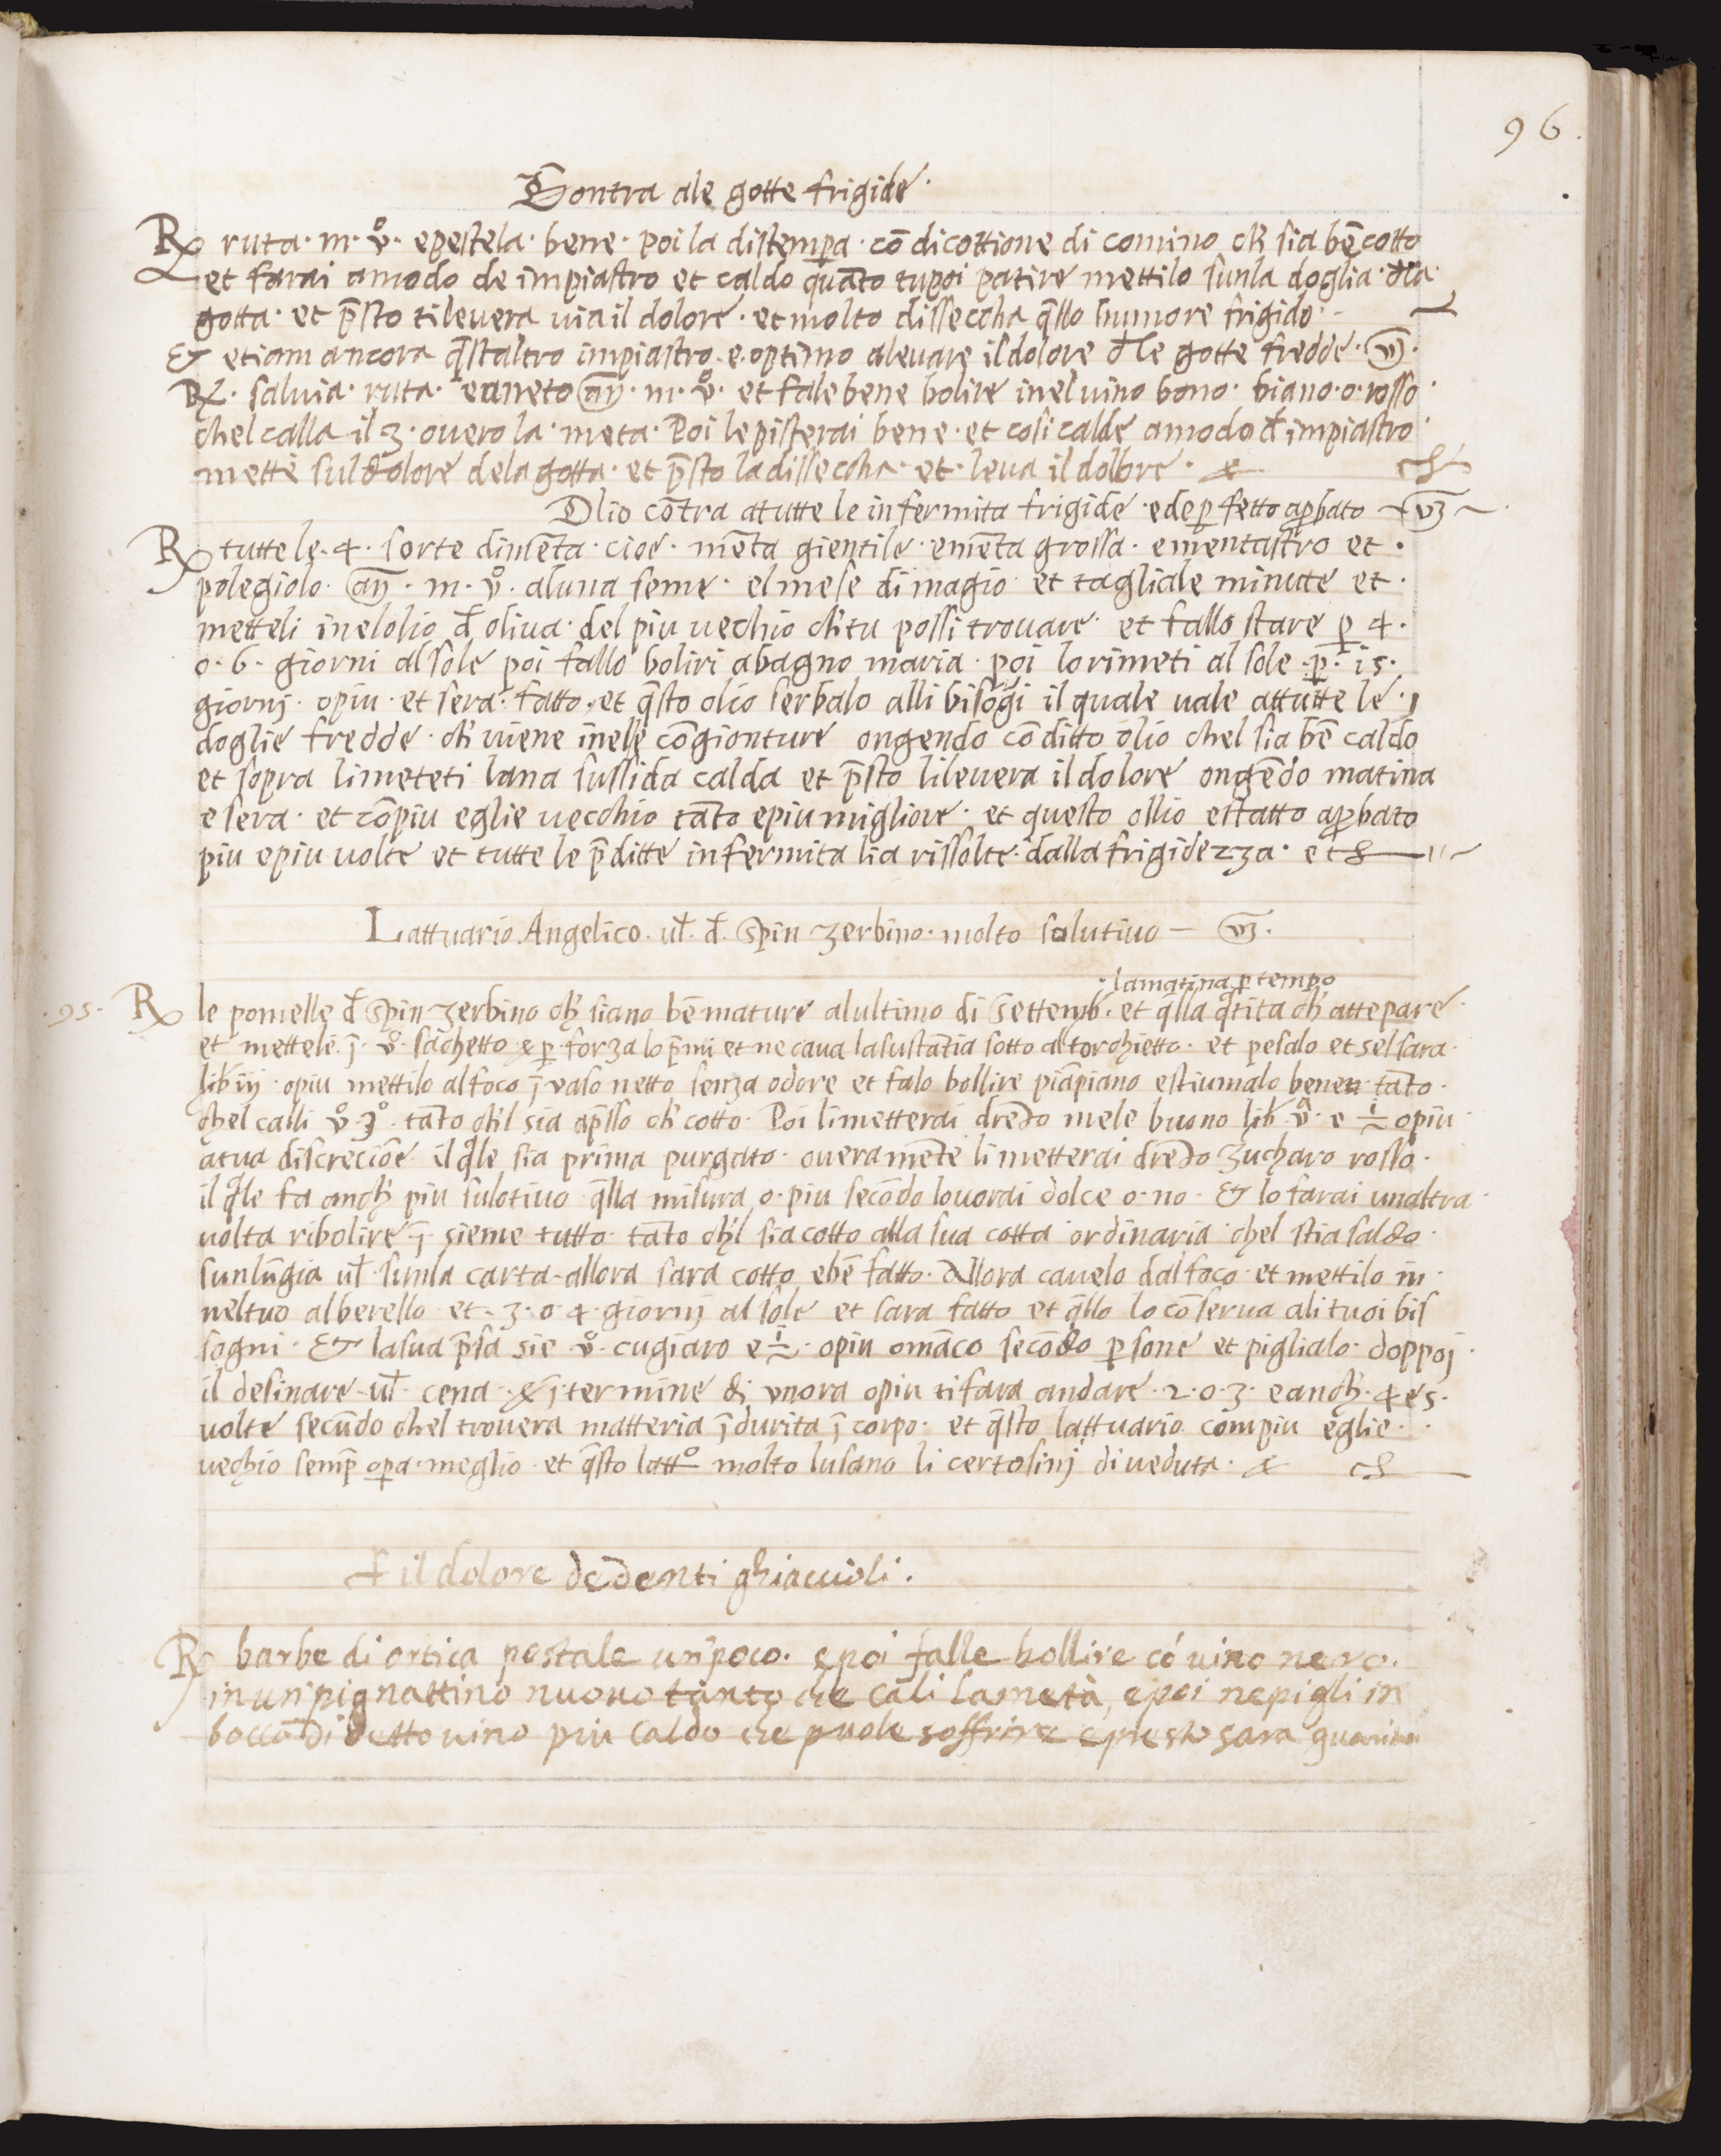 96.
Contra ale gotte frigide·
℞ ruta· m· v̊· epestela· bene· poi la distempa· cō dicottione di comino ch sia bē cotto
et farai amodo de impiastro et caldo quāto tu poi patire mettilo sunla doglia· dla·
gotta· et p̄sto ti levera via il dolore· et molto dissecha q̄llo humore frigido·
& etiam ancora q̄staltro impiastro· e· optimo alevare il dolore dle gotte fredde·
℞· salvia· ruta· eaneto añ· m· v̊· et fale bene bolire inel vino bono· biano· o· rosso·
chel calla il 3· overo la· meta· Poi le pisterai bene· et cosi calde amodo d̄ impiastro·
mette sul dolore dela gotta· et p̄sto la dissecha· et· leva il dolore·
Olio cōtra atutte le infermita frigide· ede pfetto apbato
℞ tutte le· 4· sorte dimēta· cioe· mēta gientile· emēta grossa· ementastro et·
polegiolo· añ· m· v̊· aluna seme· el mese di magio et tagliale minute et·
metteli inelolio d̄ oliva· del piu vechio ch tu possi trovare· et fallo stare p 4·
o· 6· giorni al sole poi fallo boliri abagno maria· poi lo rimeti al sole· p· 15·
giornj· opiu· et sera· fatto· et q̄sto olio serbalo alli bisogi il quale vale attutte le·
doglie fredde· ch viene inele cōgionture ongendo cō ditto olio chel sia bē caldo
et sopra limeteti lana sussida calda et p̄sto li levera il dolore ongēdo matina
e sera· et cōpiu eglie vecchio tāto epiu migliore· et questo ollio estatto apbato
piu epiu volte et tutte le p̄ditte infermita lia rissolte· dalla frigidezza· et
Lattuario Angelico· vl· d̄· spin zerbino· molto solutivo
· la matina p tempo
·95· ℞ le pomelle d̄ spin zerbino ch siano bē mature alultimo di settemb· et q̄lla q̄tita ch atte pare·
et mettele· ī· v̊· sachetto & p· forza lo p̄mi et ne cava la sustātia sotto al torchietto· et pesalo et sel sara·
lib iij· opiu mettilo al foco ī vaso netto senza odore et falo bollire piāpiano estiumalo bene· tāto·
chel calli v̊· 3̊· tāto chl sia ap̄sso ch cotto· Poi li metterai drēto mele buono lib· v̊· e ½ opiu·
atua discreciōe· il q̄le sia prima purgato· overamēte li metterai drēto zucharo rosso·
il q̄le fa anch piu solotivo q̄lla misura o· piu secōdo lo vorai dolce o· no· & lo farai unaltra·
volta ribolire ī sieme tutto· tāto chl sia cotto alla sua cotta ordinaria· chel stia saldo·
sunlūgia vl· sunla carta· allora sara cotto ebē fatto· Allora cavelo dal foco· et mettilo in·
nel tuo alberello· et· 3· o· 4· giornj al sole et sara fatto et q̄llo lo cōserva ali tuoi bis
sogni· & la sua p̄sa sie v̊· cugiaro e ½· opiu o māco secōdo psone et piglialo· doppoj·
il desinare· vl· cena· & ī termine di vnora opiu ti fara andare· 2· o· 3· e anch· 4 e 5·
volte secūdo chel trovera matteria ī durita ī corpo· et q̄sto lattuario compiu eglie··
vechio semp opa· meglio· et q̄sto latto molto lusano li certosinj di veduta·
il dolore de denti ghiaccioli.
℞ barbe di ortica pestale un poco. epoi falle bollire có vino nero.
in un pignattino nuovo tanto che cali la metà, e poi ne pigli in
bocca di detto vino piu caldo che puole soffrire e presto sara guarito